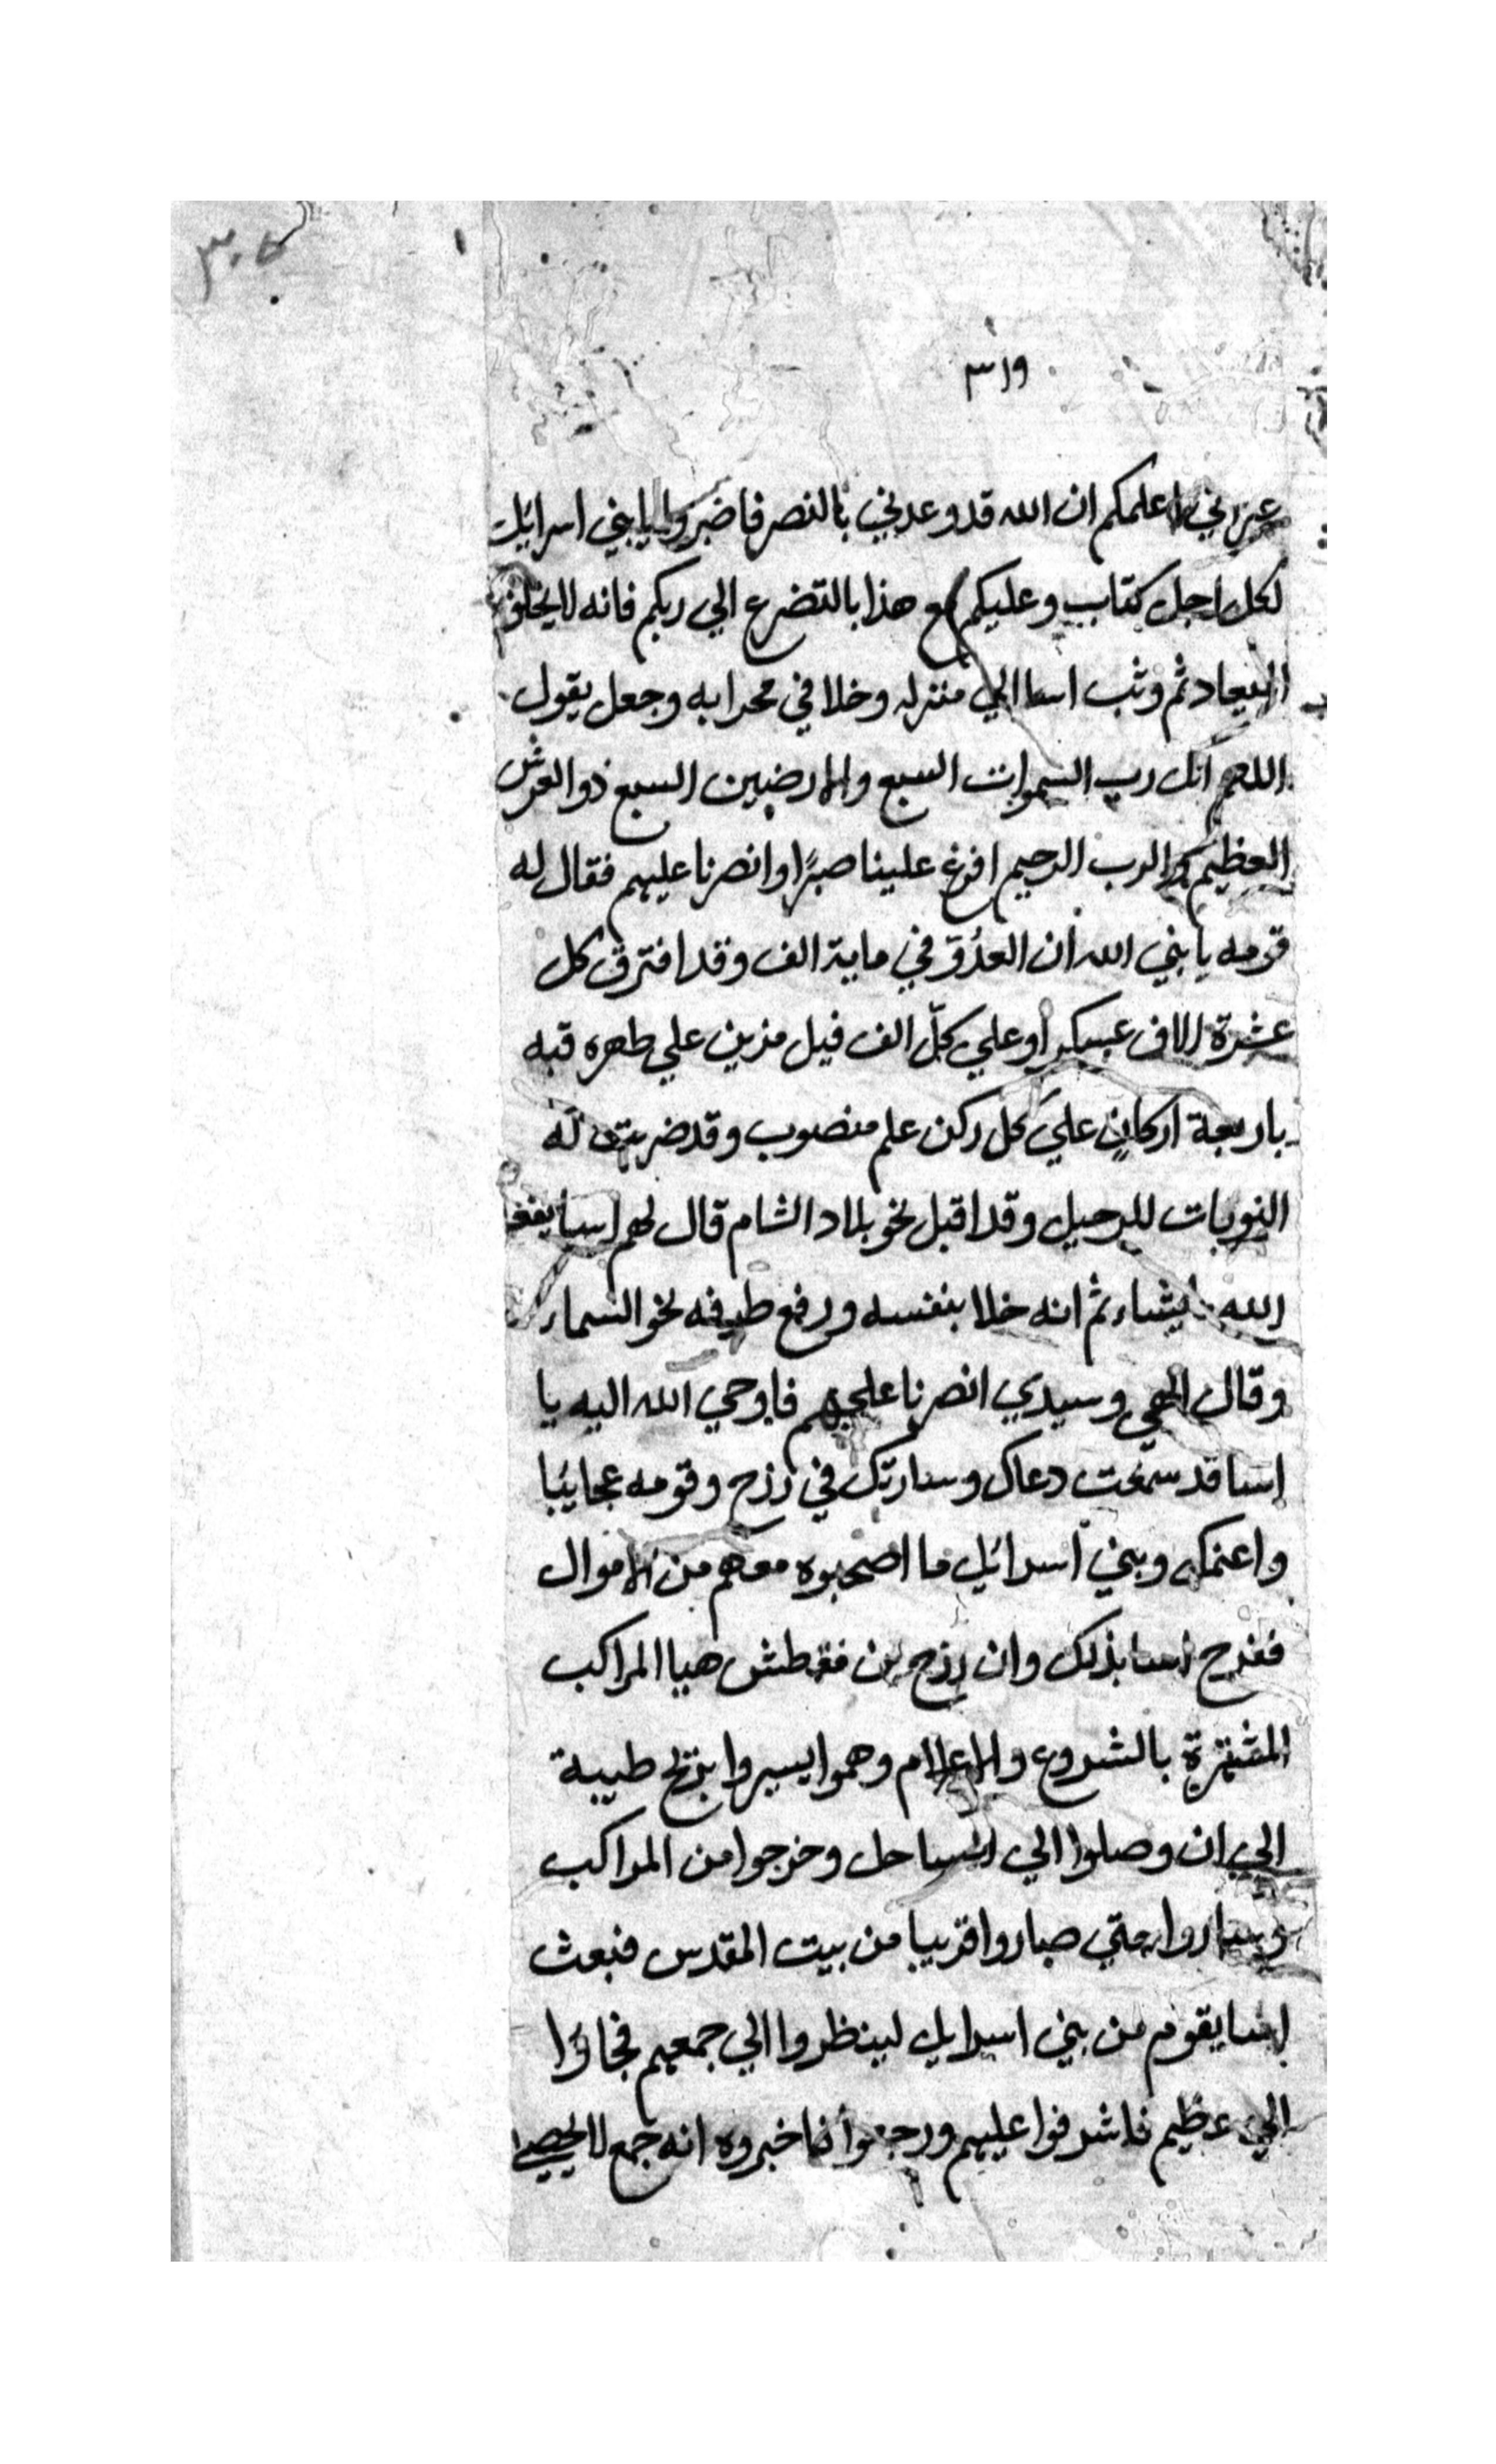 ٣٠٥
٣١٩
غير اني اعلمكم ان الله قد وعدني بالنصر فاصبروا يا بني اسرائيل
لكل اجل كتاب وعليكم مع هذا بالتضرع الي ربكم فانه لا يخلف
الميعاد ثم وثب اسا الي منزله وخلا في محرابه وجعل يقول
اللهم انك رب السموات السبع والارضين السبع ذو العرش
العظيم والرب الرحيم افرغ علينا صبرًا وانصرنا عليهم فقال له
قومه يا بني الله ان العدوّ في ماية الف وقد افترق كل
عشرة الاف عسكر وعلي كلّ الف فيل مزين علي ظهره قبه
باربعة اركانٍ علي كل ركن علم منصوب وقد ضربت له
النوبات للرحيل وقد اقبل نحو بلاد الشام قال لهم اسا يفعل
الله يشاء ثم انه خلا بنفسه ورفع طرفه نحو السماء
وقال الهي وسيدي انصرنا عليهم فاوحي الله اليه يا
اسا قد سمعت دعاك وساريك في زرح وقومه عجايبا
واغنمك وبني اسرائيل ما اصحبوه معهم من الاموال
ففرح اسا بذلك وان زرح بن هيا المراكب
بالشروع والاعلام وهموا يسيروا بريح طيبة
الي ان وصلوا الي الساحل وخرجوا من المراكب
وساروا حتي صاروا قريبا من بيت المقدس فبعث
اسا بقوم من بني اسرايل لينظروا الي جمعهم فجاؤا
الي عظيم فاشرفوا عليهم ورجعوا فاخبروه انه جمع لا يحصي